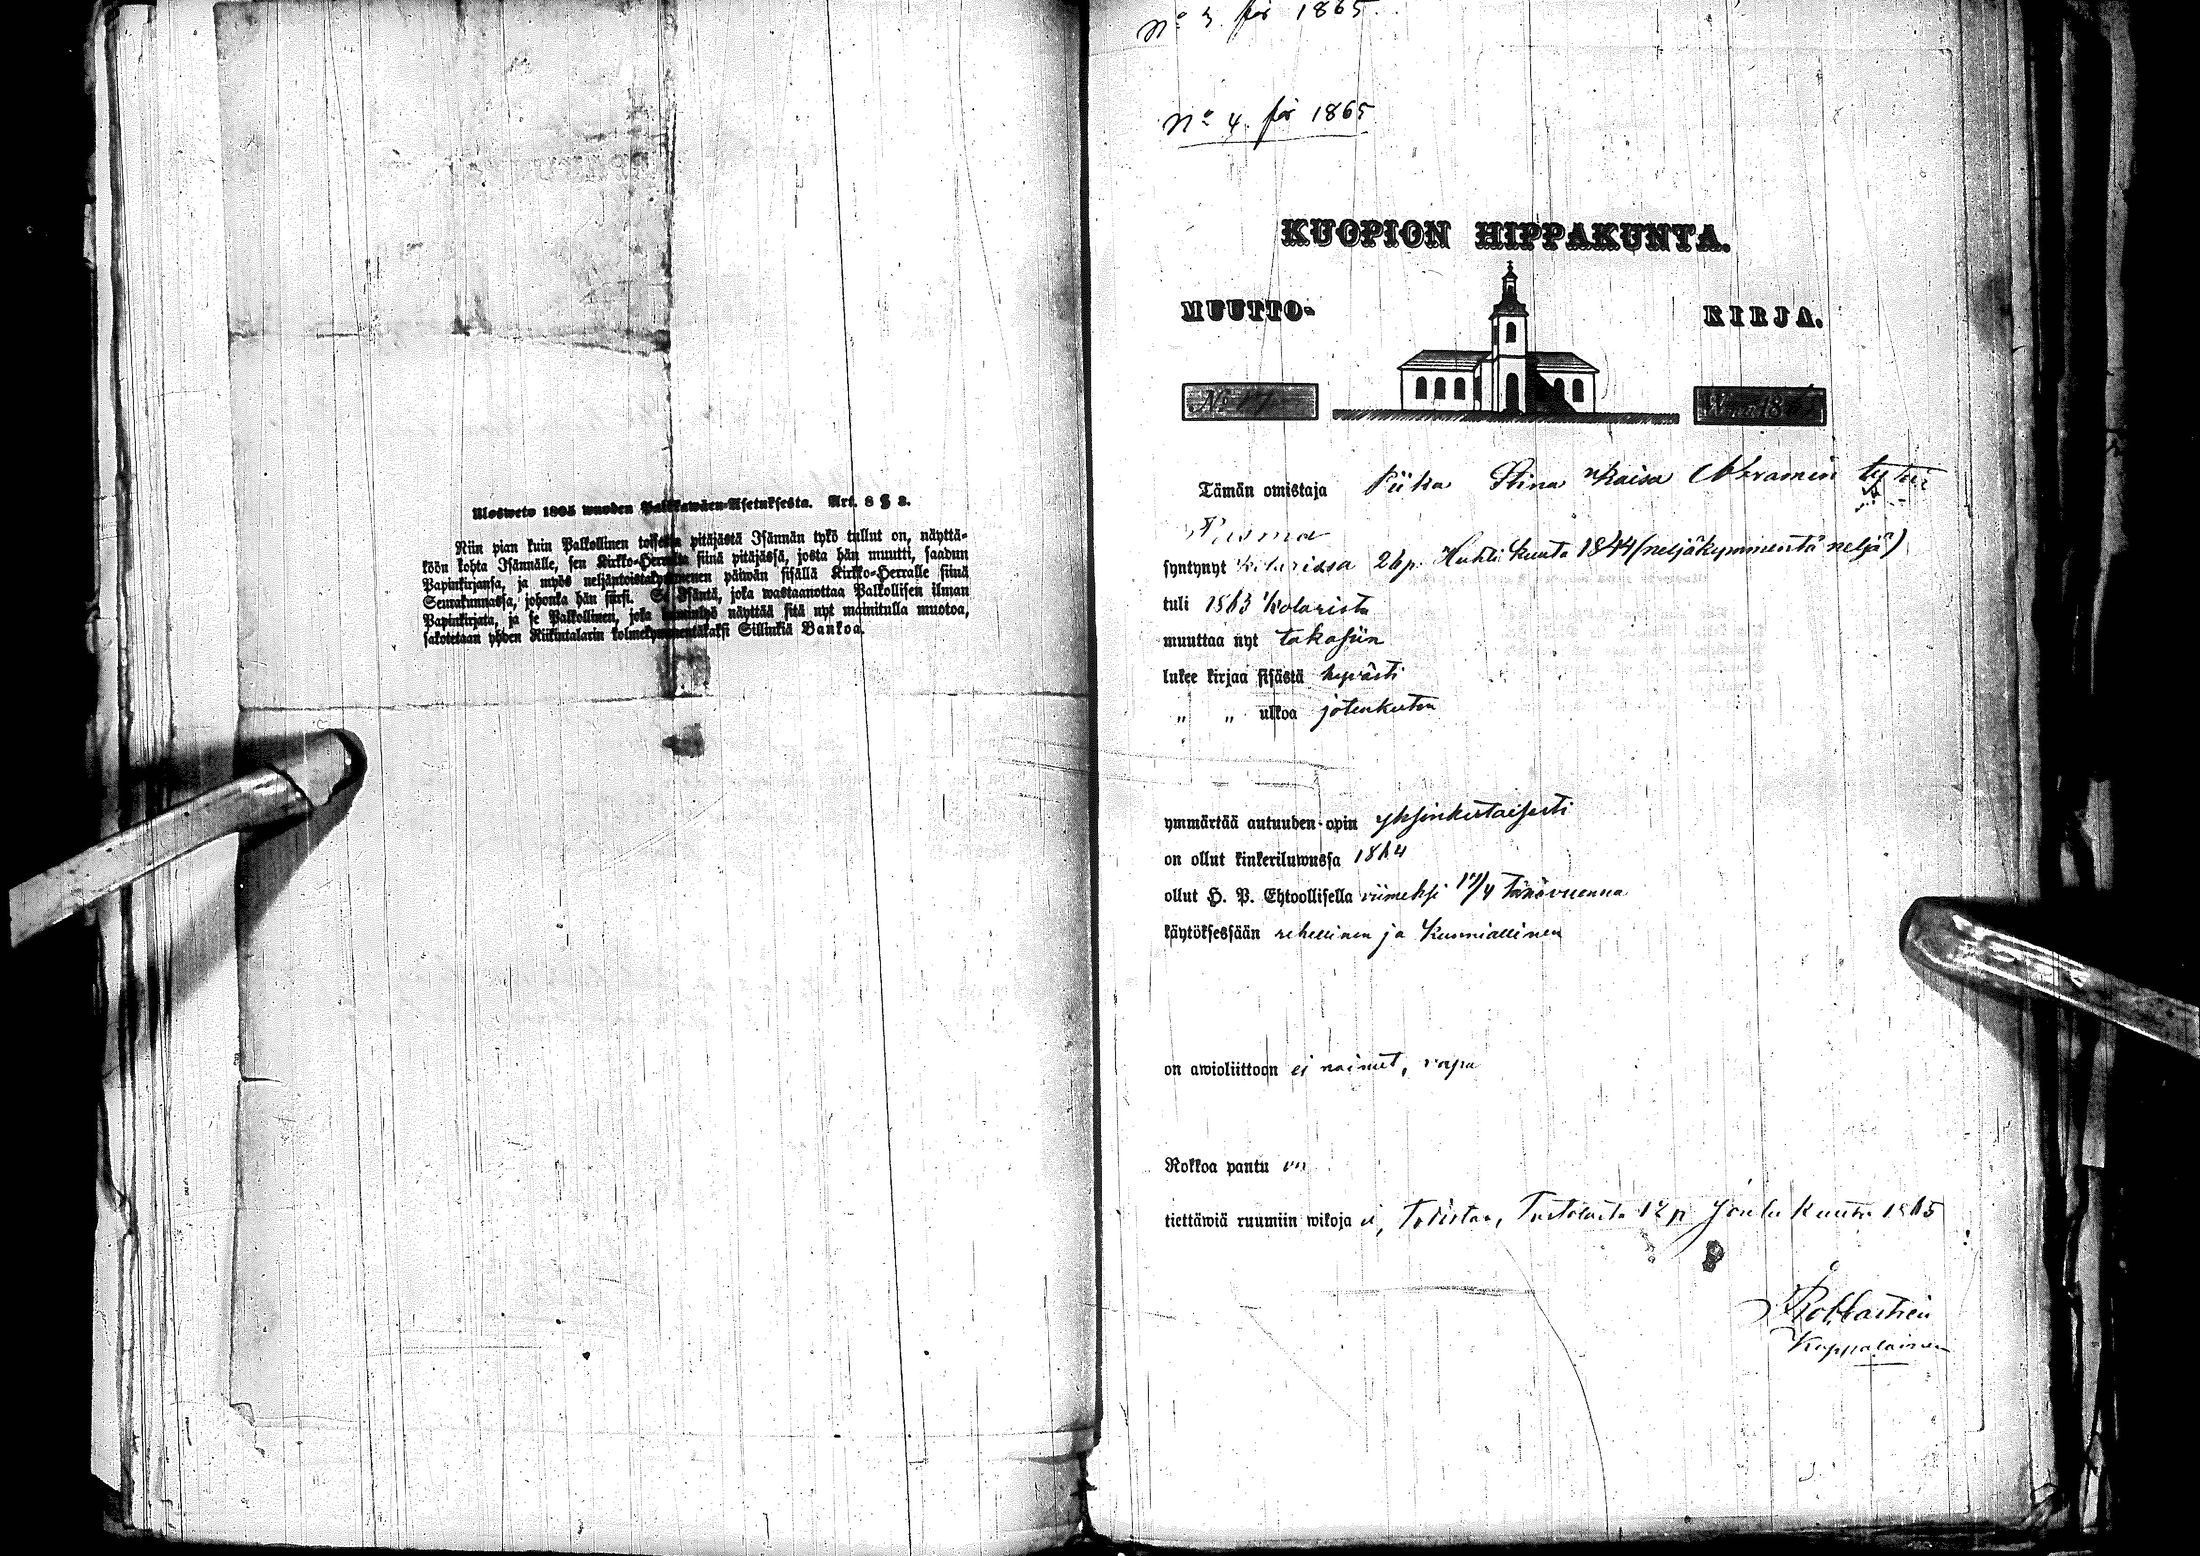 Ulosweto 1805 wuoden Palkkawäen-Asetuksesta. Art. 8 § 2.
Niin pian kuin Palkollinen toisesta pitäjästä Isännän tykö tullut on, näyttä-
köön kohta Isännälle, sen Kirkko-Herralta siinä pitäjässä, josta hän muutti, saadun
Papinkirjansa, ja myös neljäntoistakymmenen päiwän sisällä Kirkko-Herralle siinä
Seurakunnassa, johonka hän siirsi. Se Isäntä, joka wastaanottaa Palkollisen ilman
Papinkirjata, ja se Palkollinen, joka näyttää sitä nyt mainitulla muotoa,
sakotetaan yhden Riikintalarin kolmekymmentäkaksi Sillinkiä Bankoa.
No 3 för 1865.
No 4 för 1865
KUOPION HIPPAKUNTA.
MUUTTO- KIRJA.
No Wuonna 18
Tämän omistaja Piika Stina Kaisa Abramin tytär
syntynyt Kolarissa 26 p. Huhti kuuta 1844 (neljäkymmentä neljä)
tuli 1863 Kolarista
muuttaa nyt takasiin
lukee kirjaa sisästä hyvästi
„ „ ulkoa jotenkuten
ymmärtää autuuden-opin yksinkertaisesti
on ollut kinkeriluwussa 1864
ollut H. P. Ehtoollisella viimeksi /4 tänävuonna
käytöksessään rehellinen ja kunniallinen
on awioliittoon ei nainut, vapa
Rokkoa pantu on
tiettäwiä ruumiin wikoja ei, Todistaa, Turtolasta 12 p Joulu kuuta 1865
Kappalainen